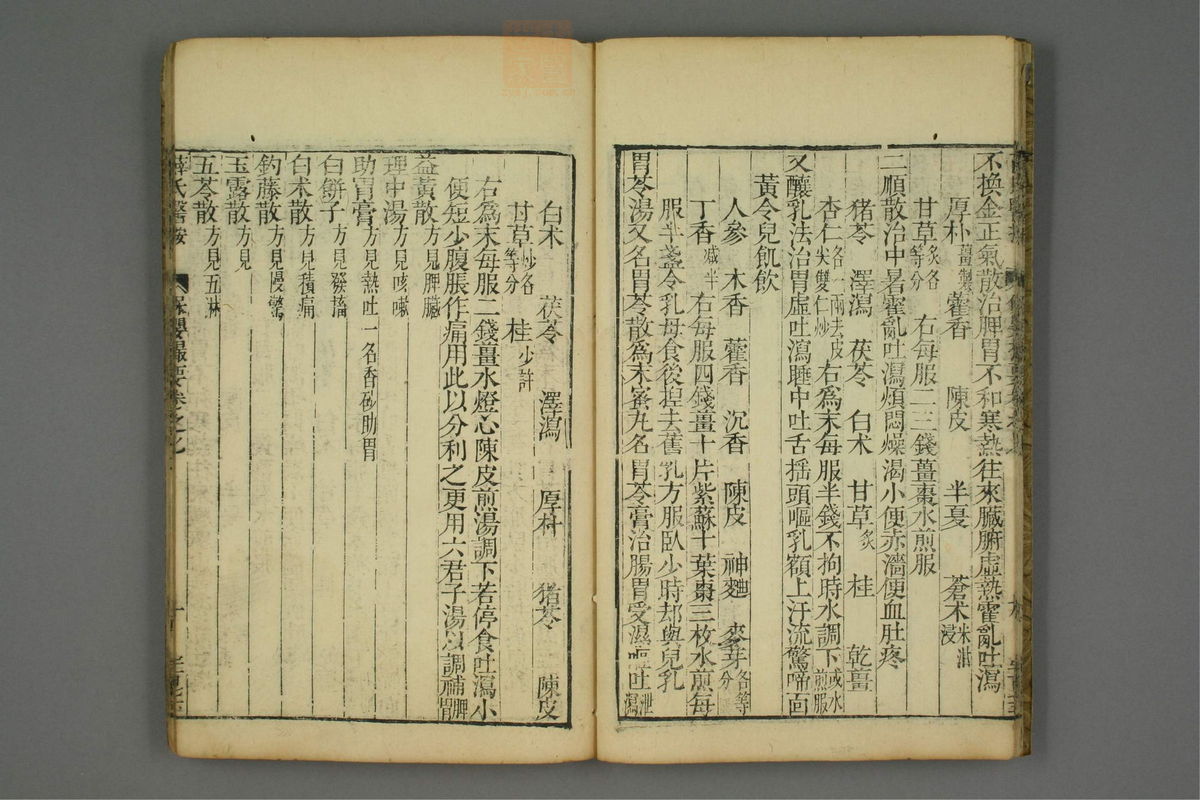 不換金正氣散治脾胃不和寒熱往來臟腑虛熱霍亂吐瀉
厚朴薑製 藿香 陳皮 半夏 蒼术米泔浸
甘草炙各等分 右每服二三錢薑棗水煎服
二順散治中暑霍亂吐瀉煩悶燥渴小便赤濇便血肚疼
猪苓 澤瀉 茯苓 白术 甘草炙 桂 乾薑
杏仁各一兩去皮尖雙仁炒 右爲末每服半錢不拘時水調下或水煎服
又釀乳法治胃虛吐瀉睡中吐舌揺頭嘔乳額上汗流驚啼面
黃令兒飢飲
人參 木香 藿香 沉香 陳皮 神麯 麥芽各等分
丁香減半 右每服四錢薑十片紫蘇十葉棗三枚水煎每
服半盞令乳母食後揑去舊乳方服卧少時却與兒乳
胃苓湯又名胃苓散爲末蜜丸名胃苓膏治腸胃受濕嘔吐泄瀉
白术 茯苓 澤瀉 厚朴 猪苓 陳皮
甘草炒各等分 桂少許
右爲末每服二錢薑水燈心陳皮煎湯調下若停食吐瀉小
便短少腹脹作痛用此以分利之更用六君子湯以調補脾胃
益黃散方見脾臟
理中湯方見咳嗽
助胃膏方見熱吐一名香砂助胃
白餅子方見發搐
白术散方見積痛
釣藤散方見慢驚
玉露散方見
五苓散方見五淋
薛氏醫按 保嬰撮要卷之七